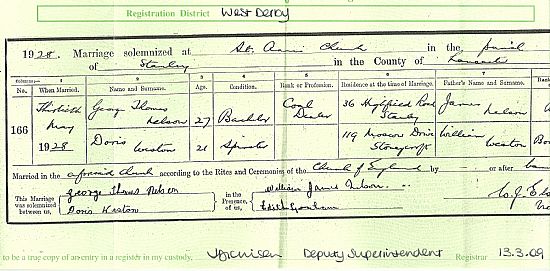 Registration District West Derby
1928. Marriage solemnized at St. Anne's Church in the parish
of Stanley in the County of Lancaster
Columns:— 1 2 3 4 5 6 7
No. When Married. Name and Surname. Age. Condition. Rank or Profession. Residence at the time of Marriage. Father's Name and Surname. Rank
166 Thirtieth May 1928 George Thomas Nelson 27 Bachelor Coal Dealer 36 Highfield Road Stanley James Nelson
Doris Weston 21 Spinster 119 Moscow Drive Stoneycroft William Weston
Married in the aforesaid church according to the Rites and Ceremonies of the Church of England by or after
This Marriage was solemnized between us, George Thomas Nelson
Doris Weston
in the Presence of us, William James Nelson
Edith
to be a true copy of an entry in a register in my custody. Deputy Superintendent Registrar 13.3.09